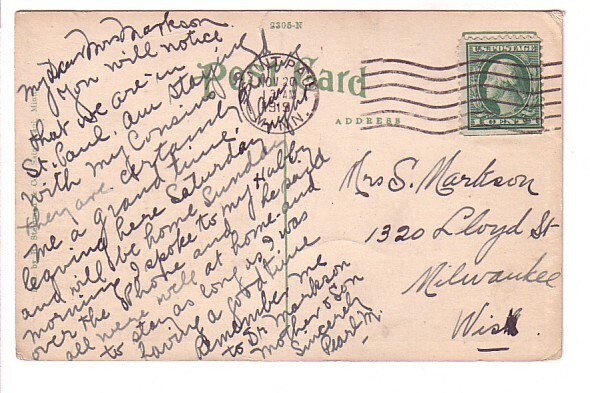 2305-N
Post Card
ADDRESS
SAINT PAUL
NOV 20
3 AM
1919
MINN.
U.S. POSTAGE
1 CENT 1
My Dear Mrs Markson
You will notice
that we are in
St. Paul, am staying
with my Cousins and
they are certainly
me a grand time,
leaving here Saturday
and will be home Sunday
morning I spoke to my Hubby
over the Phone and he said
all were well at home and
to stay as long as I was
having a good time
Remember me
to Dr Markson
Mother & Son
Sincerely
Pearl M.
Mrs S. Markson
1320 Lloyd St
Milwaukee
Wis